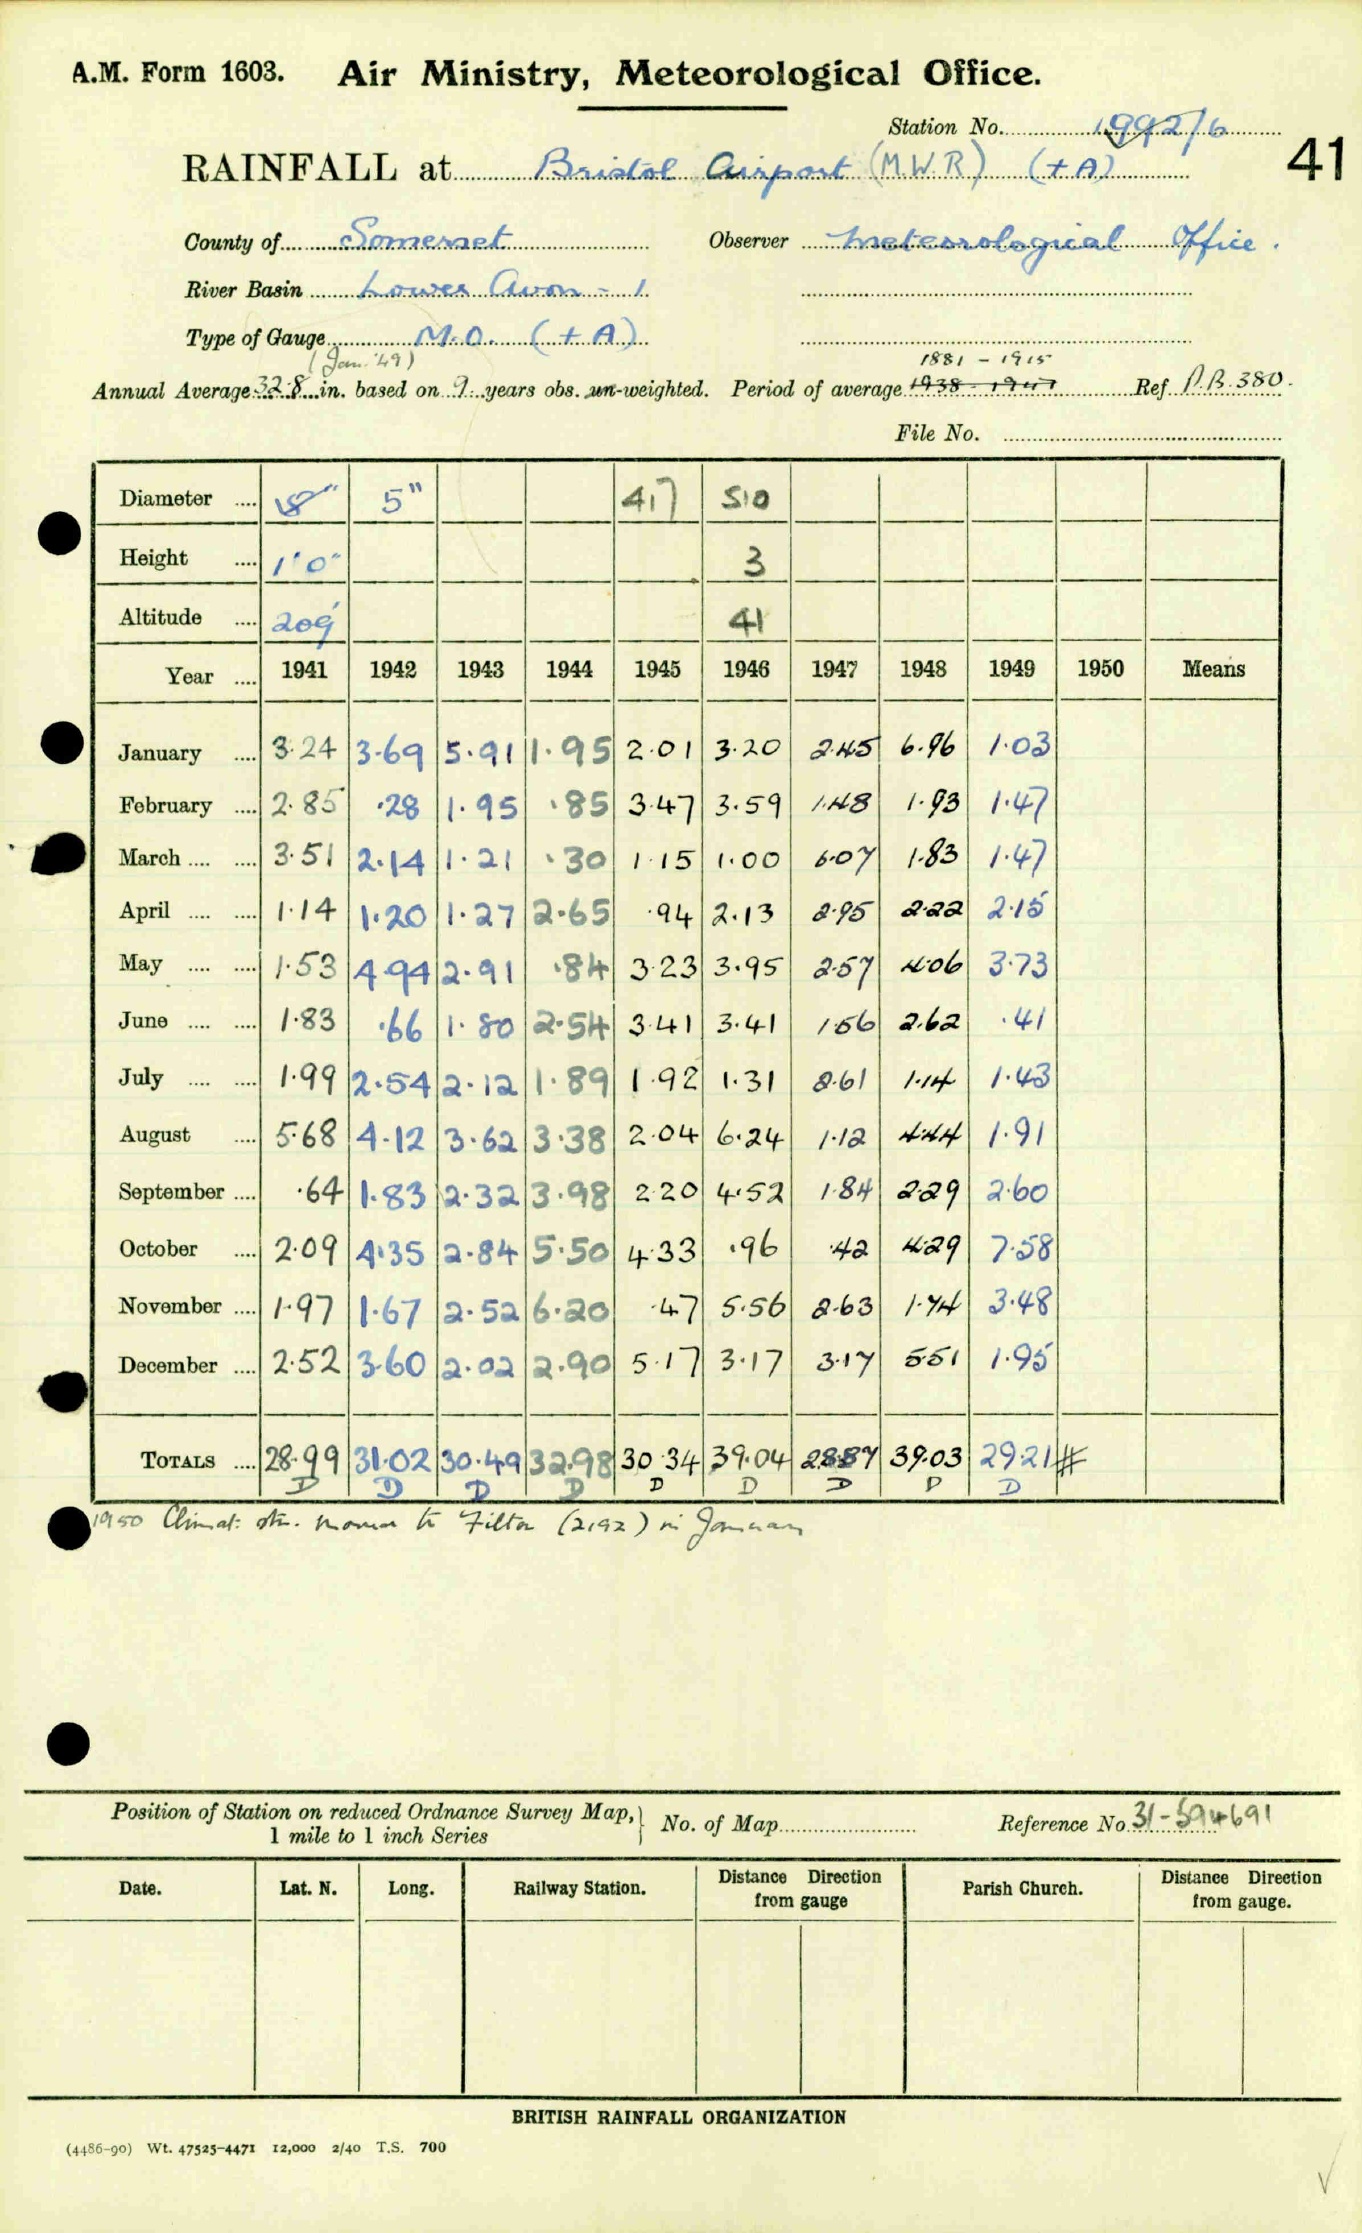 A.M. Form 1603. Air Ministry, Meteorological Office.
Station No. 1992/6
41
RAINFALL at Bristol Airport (M.W.R) (+A)
County of Somerset Observer Meteorological Office.
River Basin Lower Avon - 1
Type of Gauge M.O. (+A)
(Jan. '49) 1881 - 1915
Annual Average 32.8 in. based on 9 years obs. un-weighted. Period of average 1938 - 1947 Ref P.B. 380.
File No.
Diameter .... 8" 5" 417 510
Height .... 1'0" 3
Altitude .... 209' 41
Year .... 1941 1942 1943 1944 1945 1946 1947 1948 1949 1950 Means
January .... 3.24 3.69 5.91 1.95 2.01 3.20 2.45 6.96 1.03
February .... 2.85 .28 1.95 .85 3.47 3.59 1.48 1.93 1.47
March .... .... 3.51 2.14 1.21 .30 1.15 1.00 6.07 1.83 1.47
April .... .... 1.14 1.20 1.27 2.65 .94 2.13 2.95 2.22 2.15
May .... .... 1.53 4.94 2.91 .84 3.23 3.95 2.57 4.06 3.73
June .... .... 1.83 .66 1.80 2.54 3.41 3.41 1.56 2.62 .41
July .... .... 1.99 2.54 2.12 1.89 1.92 1.31 2.61 1.14 1.43
August .... 5.68 4.12 3.62 3.38 2.04 6.24 1.12 4.44 1.91
September .... .64 1.83 2.32 3.98 2.20 4.52 1.84 2.29 2.60
October .... 2.09 4.35 2.84 5.50 4.33 .96 .42 4.29 7.58
November .... 1.97 1.67 2.52 6.20 .47 5.56 2.63 1.74 3.48
December .... 2.52 3.60 2.02 2.90 5.17 3.17 3.17 5.51 1.95
TOTALS .... 28.99 31.02 30.49 32.98 30.34 39.04 28.87 39.03 29.21 #
D D D D D D D D D
1950 Climat: stn. moved to Filton (2192) in January
Position of Station on reduced Ordnance Survey Map, } No. of Map Reference No 31-594691
1 mile to 1 inch Series
Date. Lat. N. Long. Railway Station. Distance Direction from gauge Parish Church. Distance Direction from gauge.
BRITISH RAINFALL ORGANIZATION
(4486-90) Wt. 47525-4471 12,000 2/40 T.S. 700